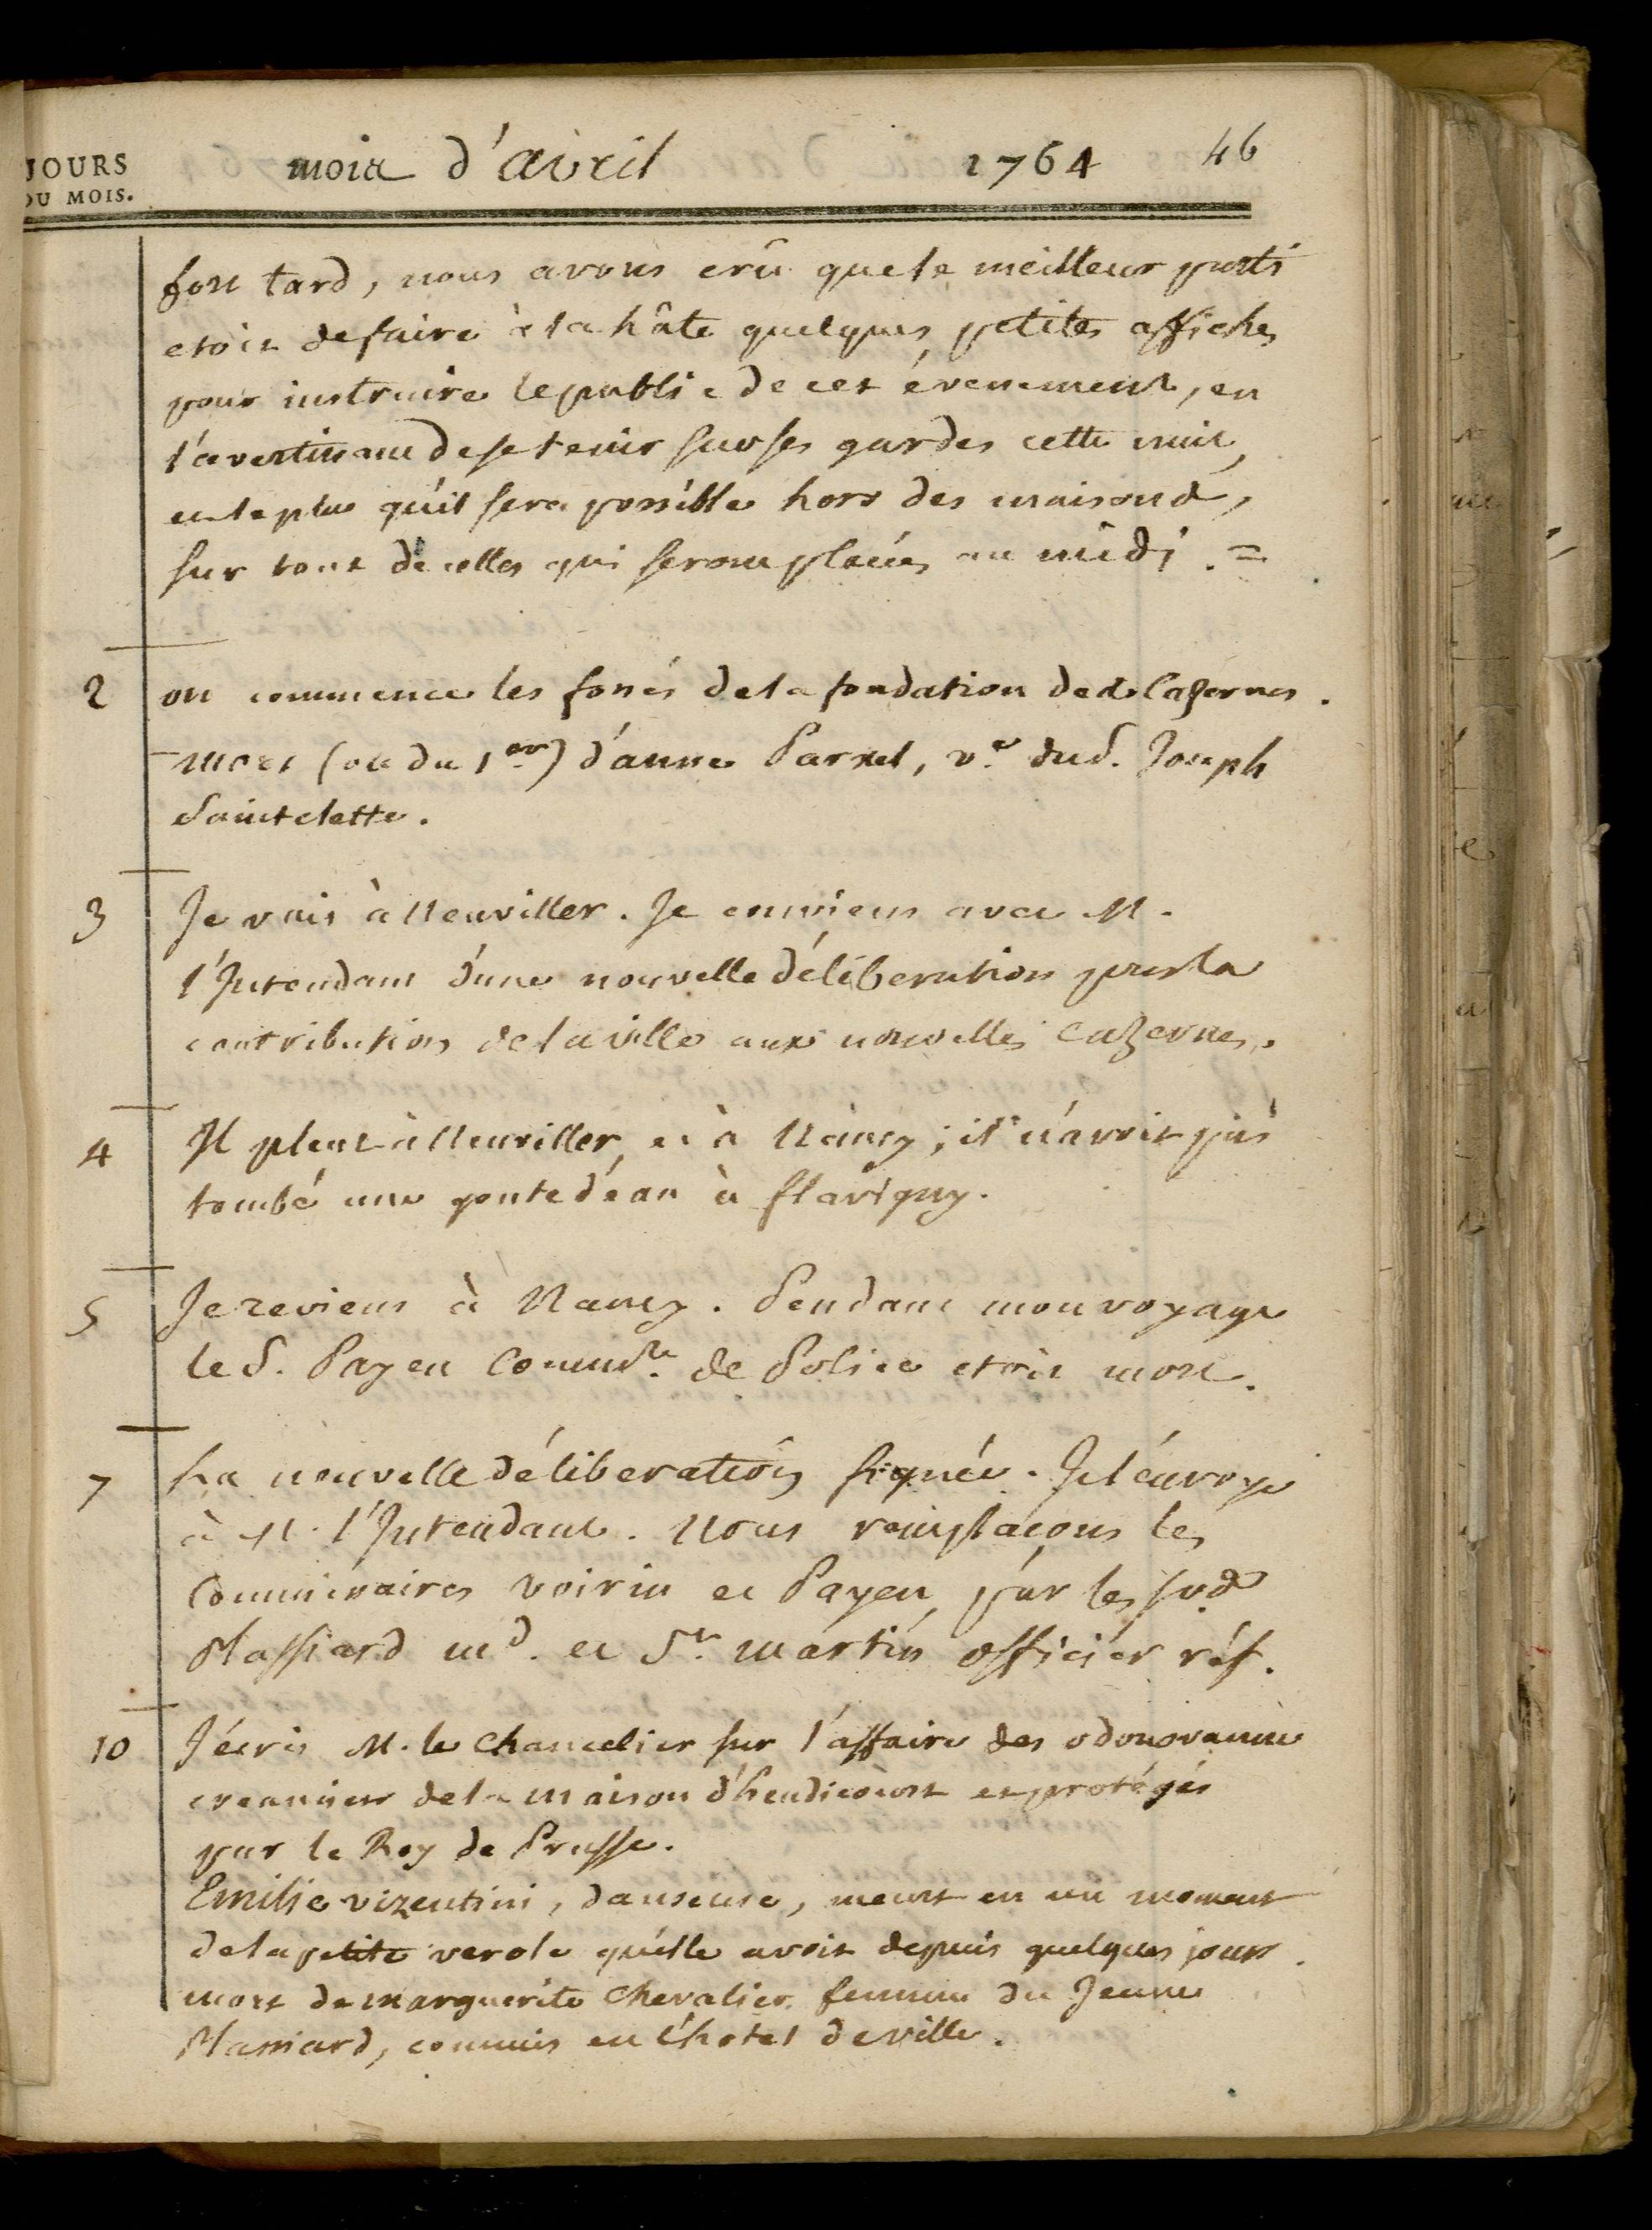 JOURS
DU MOIS.
mois d'avril 1764 46
fort tard, nous avons crû que le meilleur parti
etoit de faire à la hâte quelques petites affiches
pour instruire le public de cet évenement, en
l'avertissant de se tenir sur ses gardes cette nuit,
et le plus qu'il sera possible hors des maisons,
sur tout de celles qui seront placées au midi. =
2 on commence les fossés de la fondation des Cazernes.
- mort (ou du 1er) d'anne Parxel, ve du S. Joseph
Saintelette.
3 Je vais à Neuviller. Je conviens avec M.
l'Intendant d'une nouvelle déliberation pour la
contribution de la ville aux nouvelles Cazernes.
4 Il pleut à Neuviller, et à Nancy; il n'avoit pas
tombé une goute d'eau à flavigny.
5 Je reviens à Nancy. Pendant mon voyage
le S. Payen Commre de Police etoit mort.
7 La nouvelle déliberation signée. Je l'envoye
à M. l'Intendant. Nous remplaçons les
Commissaires voirin et Payen, par les srs
Massiard md. et St. martin officier réf.
10 J'écris M. le Chancelier sur l'affaire des odonovanne
creanciers de la maison d'heudicourt et protégés
par le Roy de Prusse.
Emilie vizentini, danseuse, meurt en un moment
de la petite verole qu'elle avoit depuis quelques jours.
mort de marguerite Chevalier femme du Jeune
Massiard, commis en l'hotel de ville.